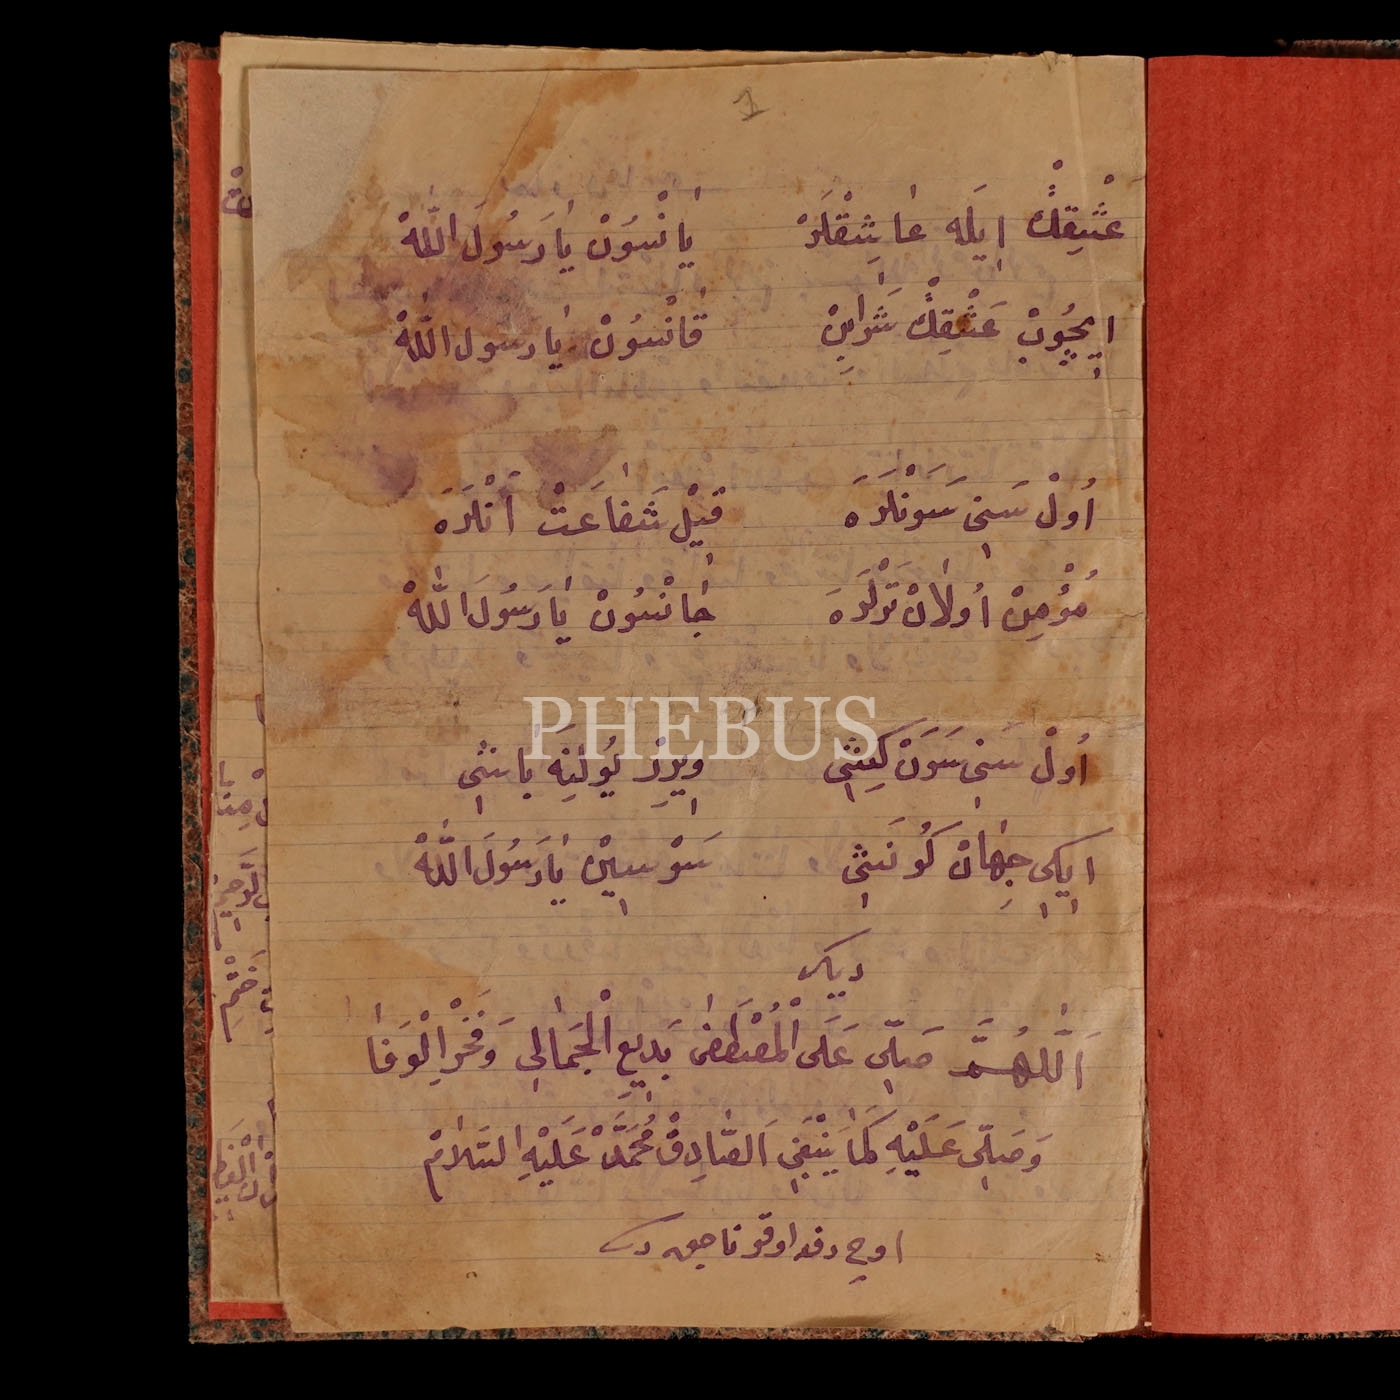 1
عَشْقِڭْ اِيلَه عَاشِقْلَرْ يَانْسُونْ يَا رَسُولَ اللّٰهْ
اِيچُوبْ عَشْقِڭْ شَرَابِنْ قَانْسُونْ يَا رَسُولَ اللّٰهْ
اُولْ سَنِى سَوَنْلَرَه قِيلْ شَفَاعَتْ اَنْلَرَه
مُؤْمِنْ اُولَانْ تَنْلَرَه جَانْسُونْ يَا رَسُولَ اللّٰهْ
PHEBUS
اُولْ سَنِى سَوَنْ كِيشِى وِيرِرْ يُولِنَه بَاشِى
اِيكِى جِهَانْ كُونَشِى سَنْسِينْ يَا رَسُولَ اللّٰهْ
ديكر
اَللّٰهُمَّ صَلِّى عَلَى الْمُصْطَفٰى بَدِيعِ الْجَمَالِى وَفَخْرِ الْوَفَا
وَصَلِّى عَلَيْهِ كَمَا يَنْبَغِى اَلصَّادِقْ مُحَمَّدْ عَلَيْهِ السَّلَامْ
اوچ دفعه اوقوناجقدر